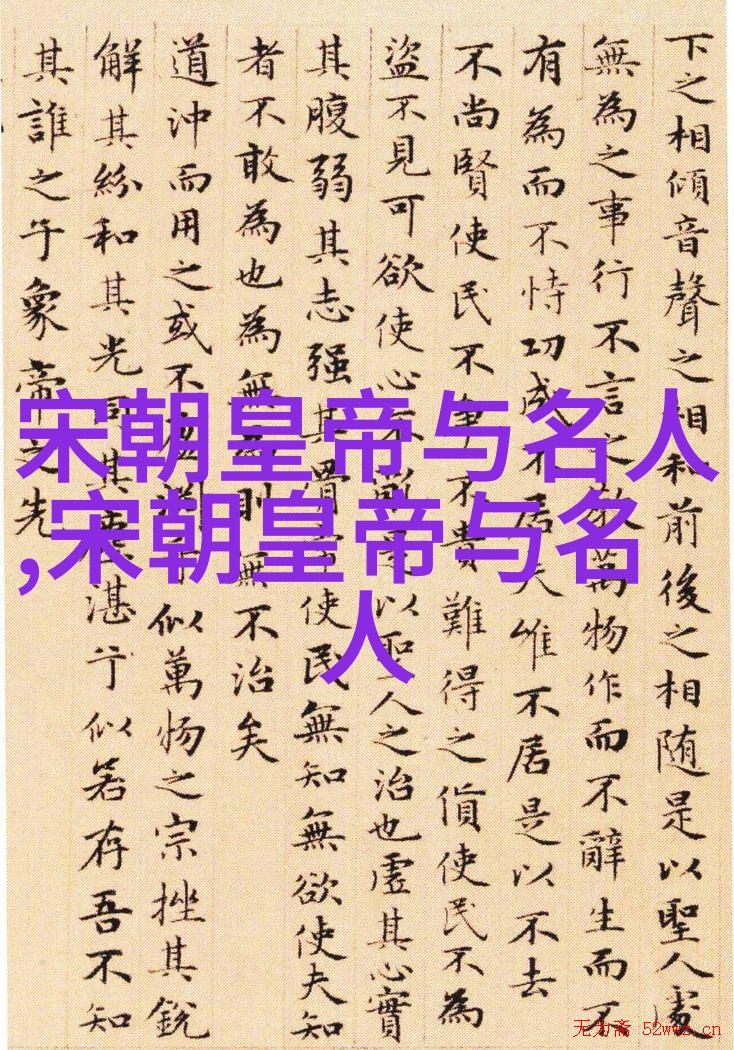 下之相傾音聲之相和前後之相随是以聖人處
無為之事行不言之教萬物作而不辭生而不
有為而不恃功成不居夫唯不居是以不去
不尚賢使民不争不貴難得之貨使民不為
盜不見可欲使心不是以聖人之治也虛其心實
其腹弱其志强其骨使民無知無欲使夫知
者不敢為也為無為則無不治矣
道沖而用之或不淵乎似萬物之宗挫其銳
解其紛和其光同其湛乎似若存吾不知
其誰之子象帝之先
宋朝皇帝与名人
,宋朝皇帝与名
人
无为斋 52wwz.cn